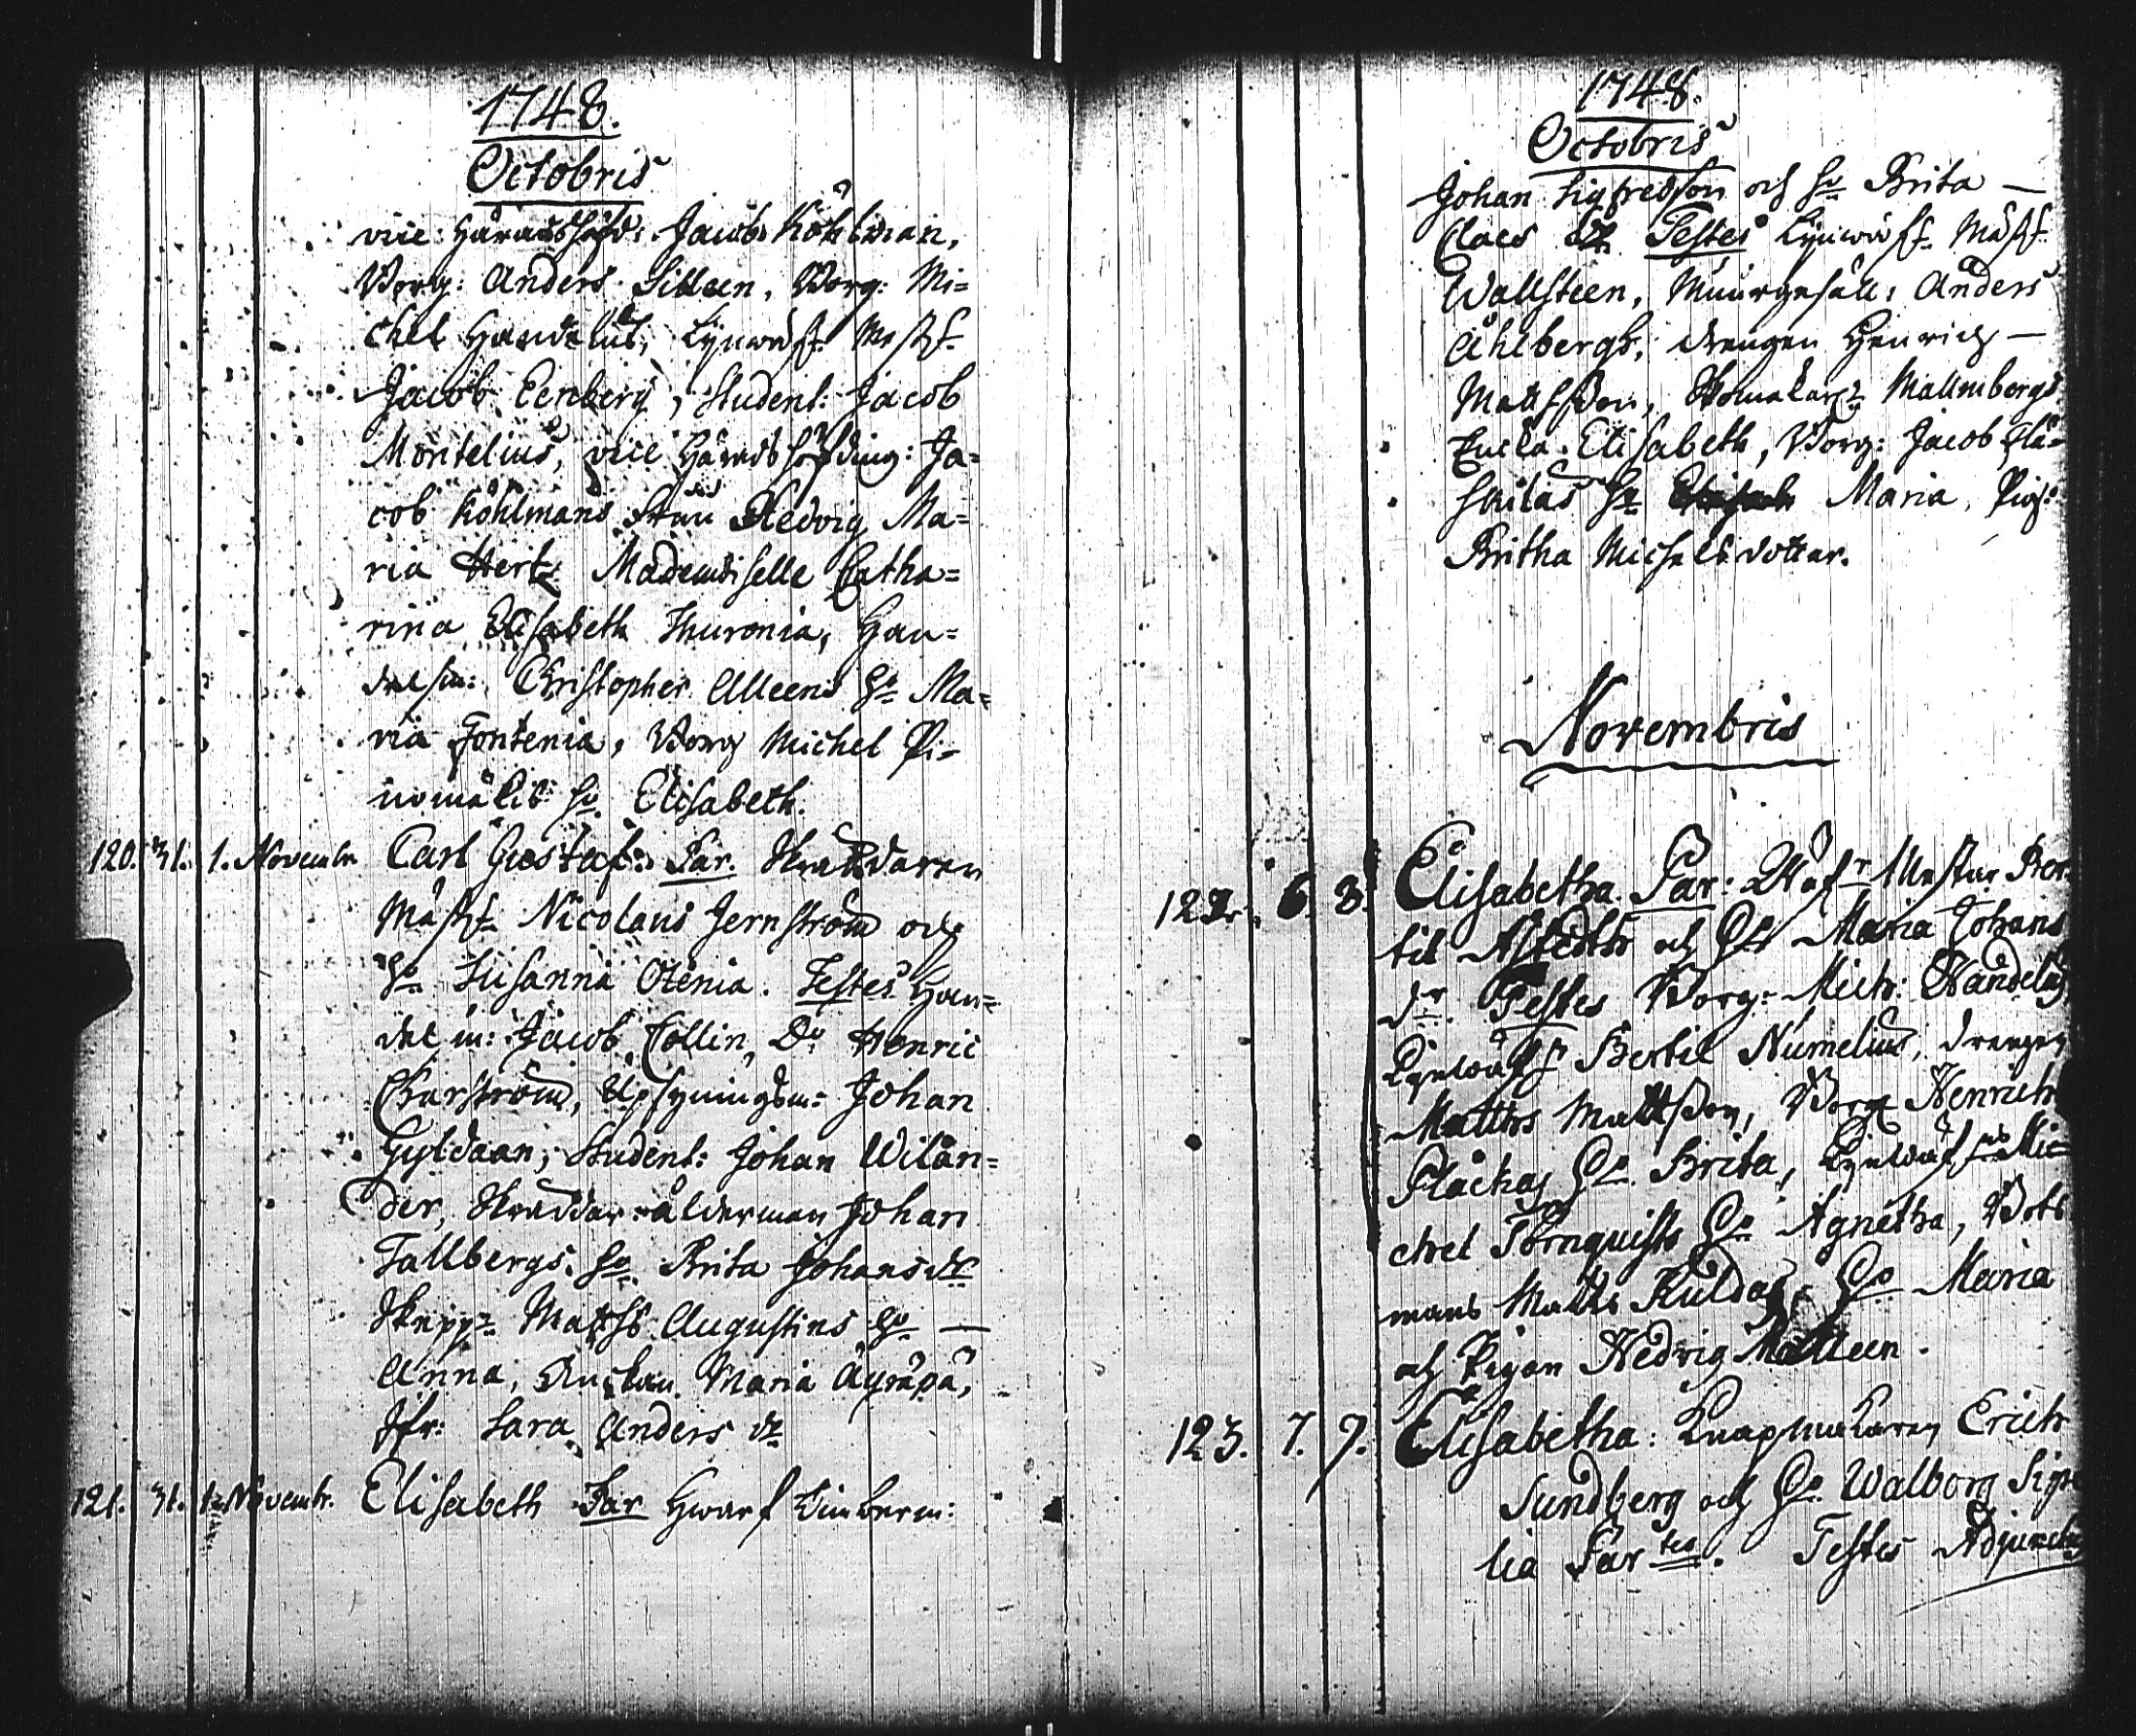 1748.
Octobris
vice Häradshöfd: Jacob Köhlman,
Borg: Anders Silleen, Borg: Mi=
chel Handelus, Lijnwäf: Mestf.
Jacob Eenberg, Student: Jacob
Montelius, vice Häradshöfding: Ja=
cob Köhlmans Fruu Hedvig Ma=
ria Hertz Mademoiselle Catha=
rina Elisabeth Thuronia, Han=
delsm: Christopher Alleens H:o Ma=
ria Fontenia, Borg Michel Pi=
nomäkis H:o Elisabeth.
120. 31. 1. Novembr. Carl Gustaf: Par. Skreddaren
Mästf. Nicolaus Jernström och
H:o Susanna Otenia. Testes Han=
delm: Jacob Collin, D:o Henric
Carström, Upsyningsm: Johan
Gyldaan, Student: Johan Wilan=
der, Skreddar ålderman Johan
Tallbergs H:o Brita Johansdr
Skepp: Matths Augustins H:o —
Anna, Enckan Maria Äyräpä,
Jfr: Sara Anders dr
121. 31. 1. Novembr. Elisabeth Par Hwarf timberm:
1748.
Octobris
Johan Sigfredsson och H:o Brita —
Claes dr Testes Lijnwäf: Mästf.
Wallsteen, Muurgesäll: Anders
Ahlbergh, drengen Henrich —
Mattsson, Skomakar Mallmbergs
Encka Elisabeth, Borg: Jacob Flä=
skilas H:o Maria, Pig:
Britha Michelsdotter.
Novembris
122. 6. 8. Elisabetha. Par: Wäf Mestar Ber
til Astedth och H:o Maria Johans
dr. Testes Borg: Mich: Handelus
Lijnwäf Bertil Numelius, drengen
Matths Mattsson, Borg Henrich
Flackas H:o Brita, Lijnwäf Mi=
chel Törnquists H:o Agnetha, Båts
mans Matts Kuldas H:o Maria
och Pigan Hedvig Matleen.
123. 7. 9. Elisabetha: Knapmakaren Erich
Sundberg och H:o Walborg Sipe
lia Partes. Testes Adjuncten